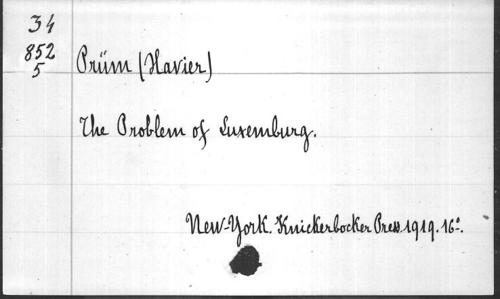 34
852
5
Prüm (Xavier)
The Problem of Luxemburg.
New-York. Knickerbocker Press. 1919. 16º.